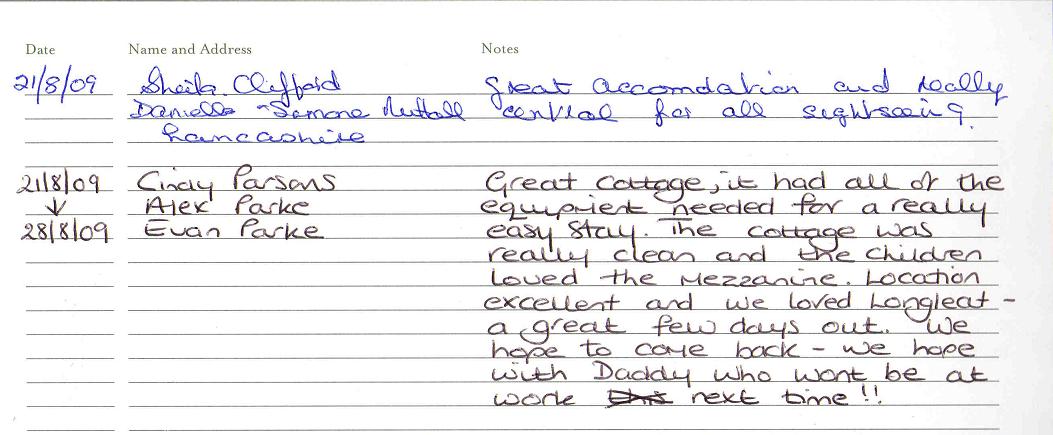 Date Name and Address Notes
21/8/09 Sheila Clifford Great accomdation and really
Danielle Simone Nuttall central for all sightseeing.
Lancashire
21/8/09 Cindy Parsons Great cottage, it had all of the
↓ Alex Parke equipment needed for a really
28/8/09 Evan Parke easy stay. The cottage was
really clean and the children
loved the Mezzanine. Location
excellent and we loved Longleat -
a great few days out. We
hope to come back - we hope
with Daddy who wont be at
work this next time!!